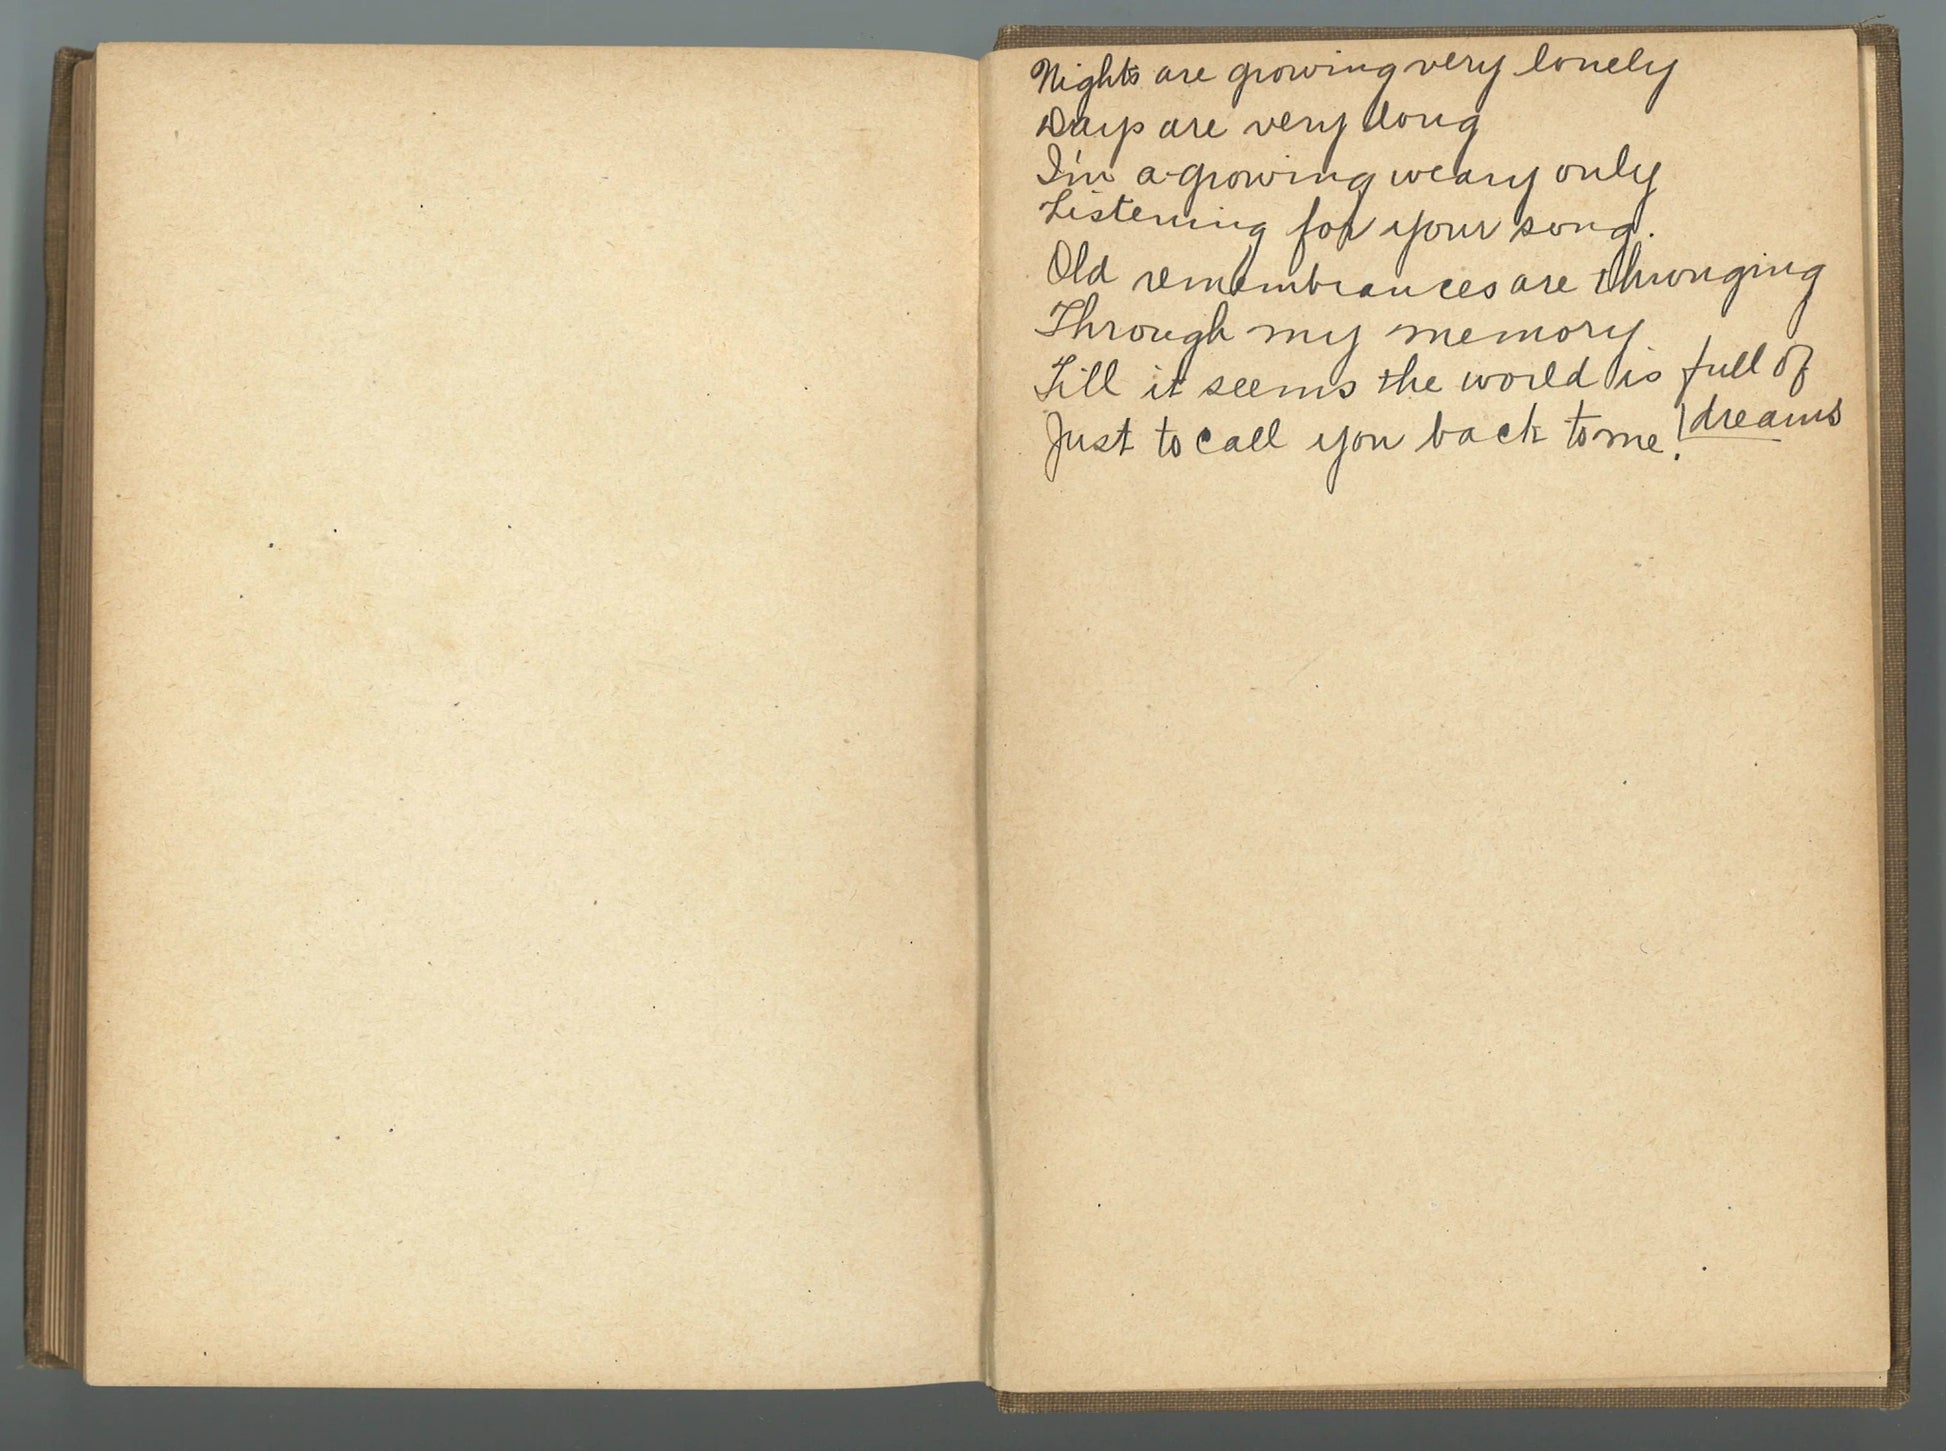 Nights are growing very lonely
Days are very long
I'm a-growing weary only
Listening for your song.
Old remembrances are thronging
Through my memory
Till it seems the world is full of
dreams
Just to call you back to me!